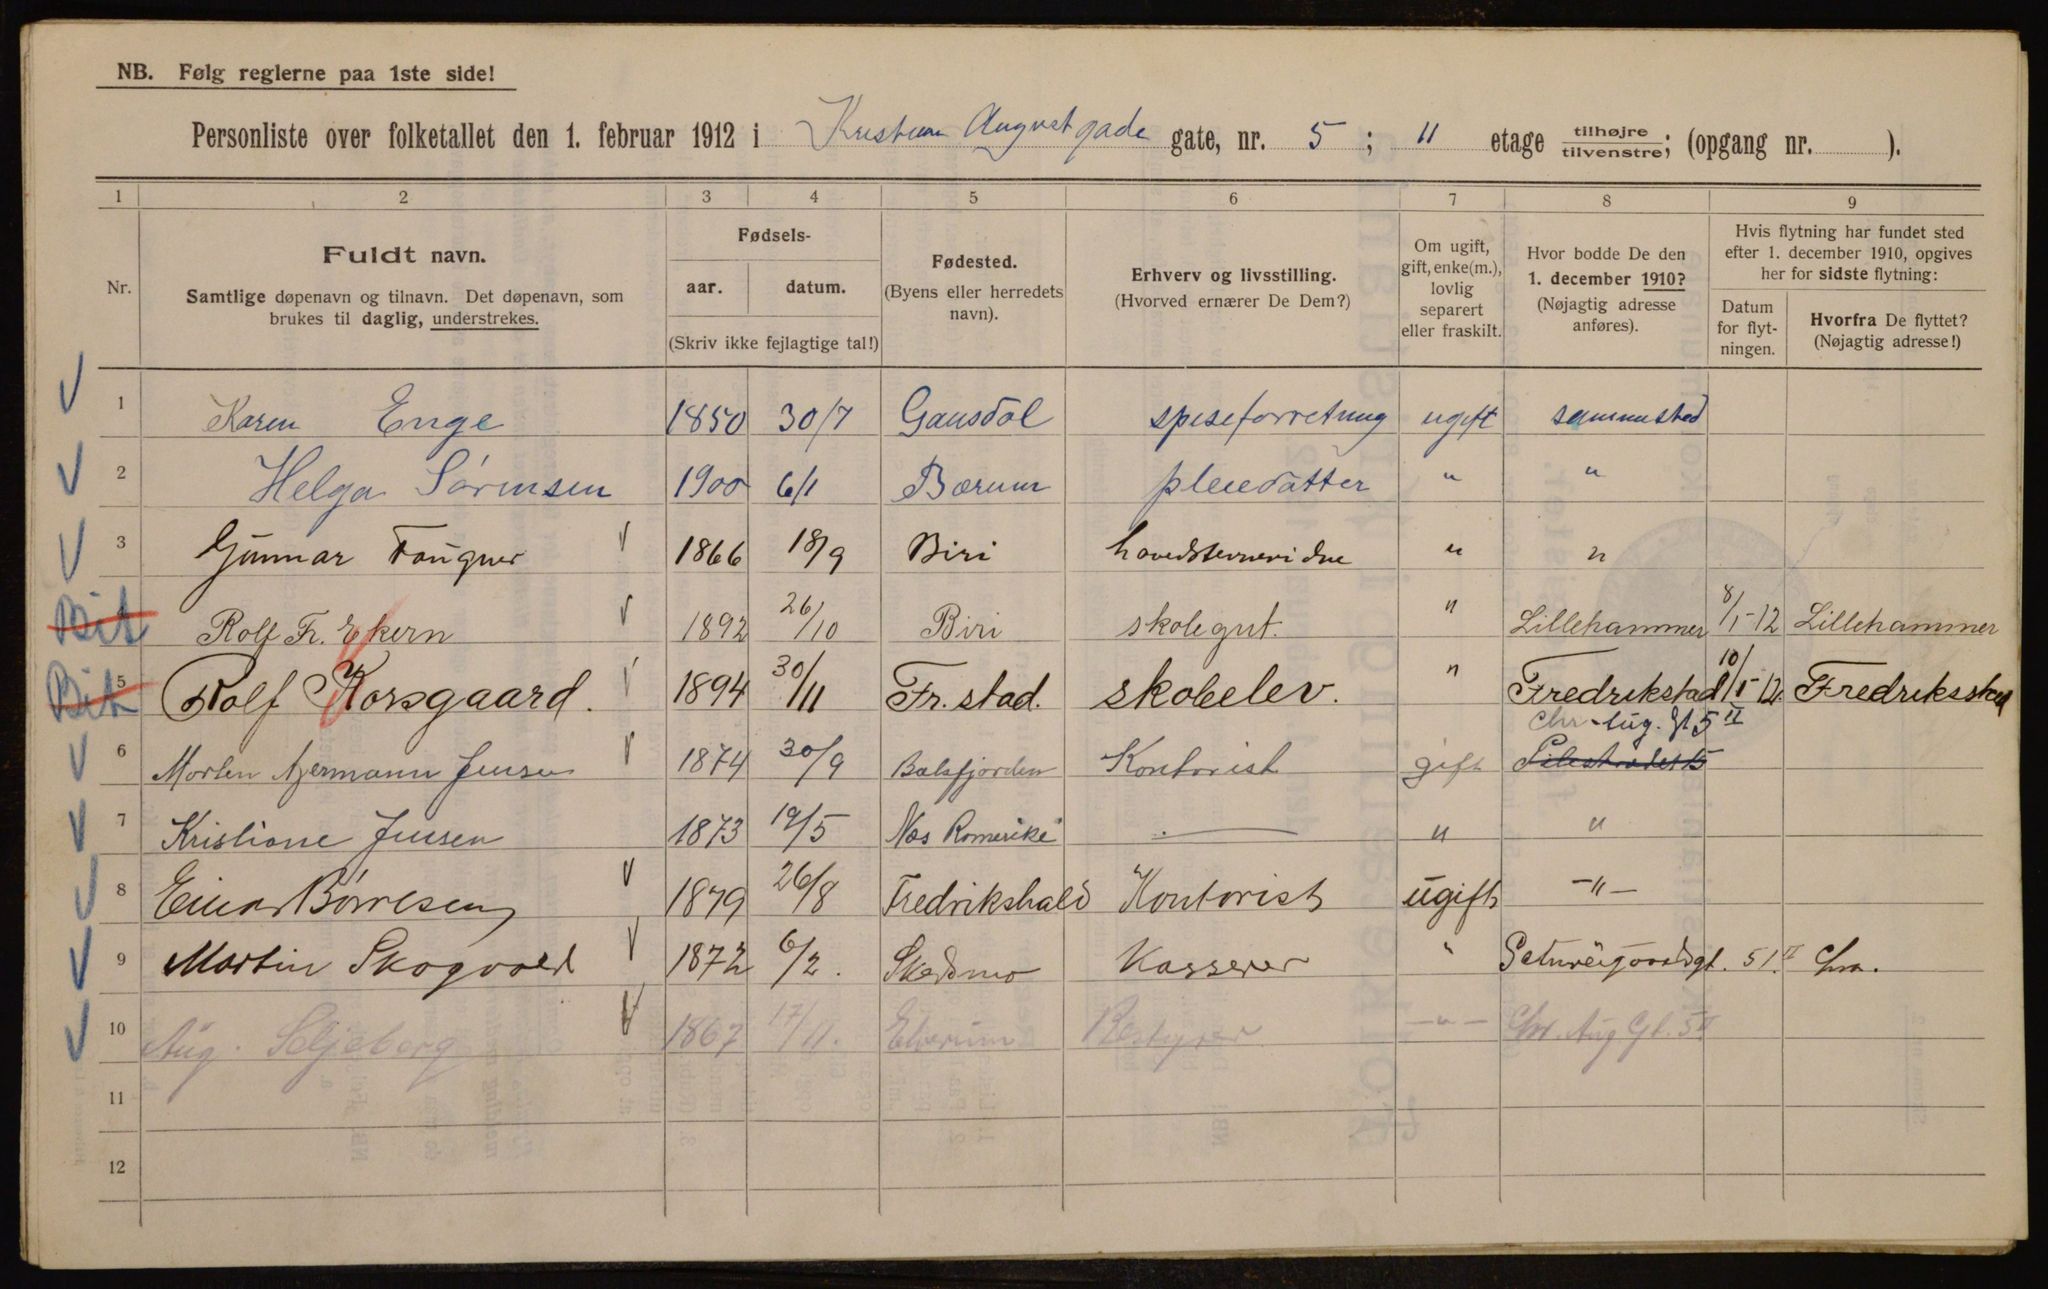 NB. Følg reglerne paa 1ste side!
Personliste over folketallet den 1. februar 1912 i Kristian August gade gate, nr. 5 ; 11 etage tilhøjre/tilvenstre; (opgang nr. ).
1 2 3 4 5 6 7 8 9
Nr.
Fuldt navn.
Samtlige døpenavn og tilnavn. Det døpenavn, som
brukes til daglig, understrekes.
Fødsels-
aar. datum.
(Skriv ikke fejlagtige tal!)
Fødested.
(Byens eller herredets
navn).
Erhverv og livsstilling.
(Hvorved ernærer De Dem?)
Om ugift,
gift, enke(m.),
lovlig
separert
eller fraskilt.
Hvor bodde De den
1. december 1910?
(Nøjagtig adresse
anføres).
Hvis flytning har fundet sted
efter 1. december 1910, opgives
her for sidste flytning:
Datum
for flyt-
ningen.
Hvorfra De flyttet?
(Nøjagtig adresse!)
1 Karen Enge 1850 30/7 Gausdal spiseforretning ugift sammested
2 Helga Sørensen 1900 6/1 Bærum pleiedatter " "
3 Gunnar Fougner 1866 18/9 Biri " "
Bit 4 Rolf Fr. Ekern 1892 26/10 Biri skolegut. " Lillehammer 8/1-12 Lillehammer
Bit 5 Rolf Korsgaard. 1894 30/11 Fr.stad. skoleelev. " Fredrikstad 10/1-12. Fredriksstad
Chr. Aug. Gt 5 II
6 Morten Ajermann Jensen 1874 30/9 Balsfjorden Kontorist gift
7 Kristiane Jensen 1873 19/5 Nes Romerike — " "
8 Einar Børresen 1879 26/8 Fredrikshald Kontorist ugift -"-
9 Martin Skogvold 1872 6/2. Skedsmo Kasserer " 51. II Chra.
10 Aug. Seljeberg 1867 17/11. Elverum Bestyrer -"- Chr. Aug Gt. 5 II
11
12